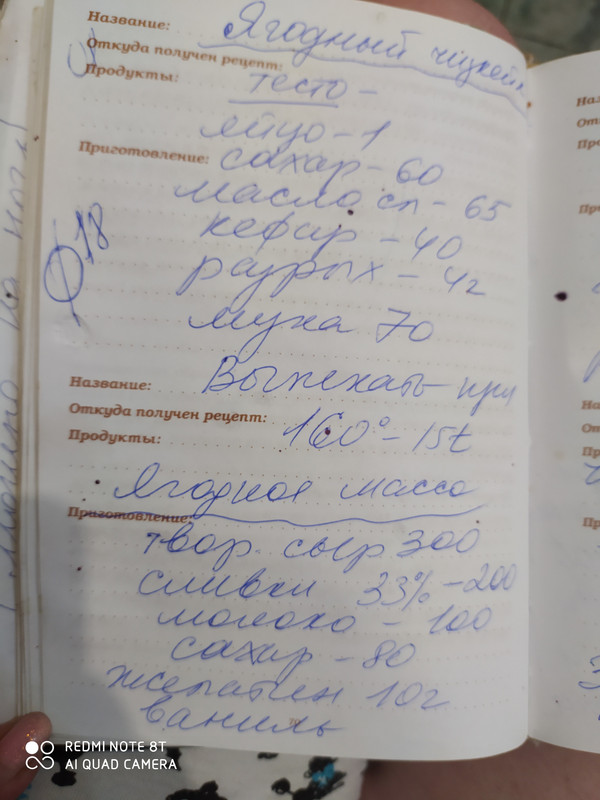 Название: Ягодный чизкейк
Откуда получен рецепт:
Продукты: тесто –
яйцо – 1
Приготовление: сахар – 60
масло сл – 65
кефир – 40
разрых – 4г
Ø 18
мука 70
Название: Выпекать при
Откуда получен рецепт: 160° – 15t
Продукты:
Ягодная масса
Приготовление:
твор. сыр 300
сливки 33% – 200
молоко – 100
сахар – 80
желатин 10г
ваниль
REDMI NOTE 8T
AI QUAD CAMERA